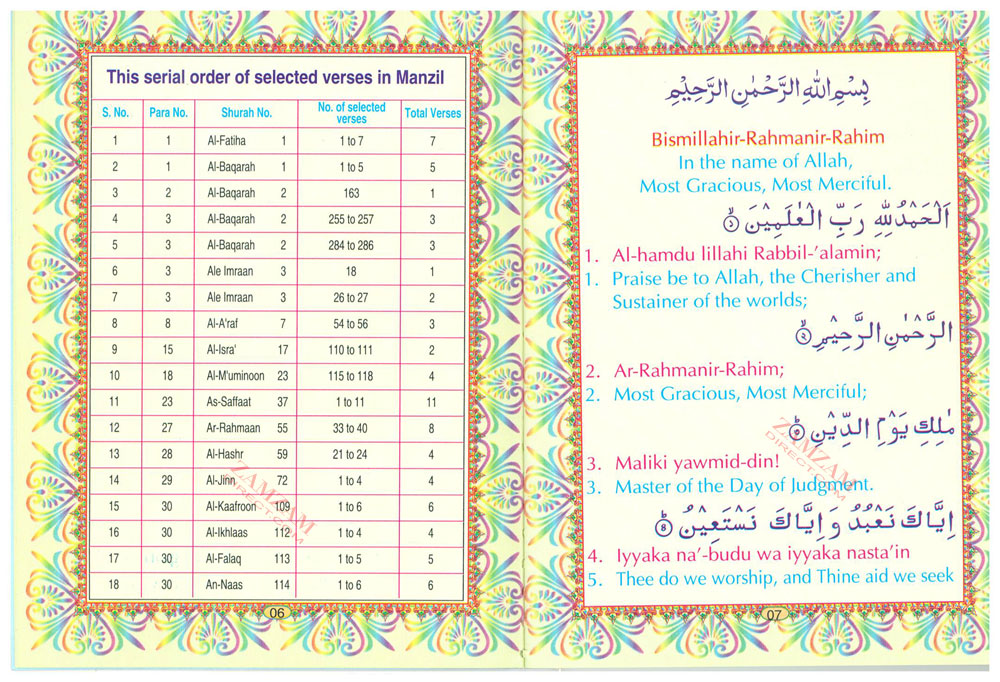 This serial order of selected verses in Manzil
S. No. Para No. Shurah No. No. of selected verses Total Verses
1 1 Al-Fatiha 1 1 to 7 7
2 1 Al-Baqarah 1 1 to 5 5
3 2 Al-Baqarah 2 163 1
4 3 Al-Baqarah 2 255 to 257 3
5 3 Al-Baqarah 2 284 to 286 3
6 3 Ale Imraan 3 18 1
7 3 Ale Imraan 3 26 to 27 2
8 8 Al-A'raf 7 54 to 56 3
9 15 Al-Isra' 17 110 to 111 2
10 18 Al-M'uminoon 23 115 to 118 4
11 23 As-Saffaat 37 1 to 11 11
12 27 Ar-Rahmaan 55 33 to 40 8
13 28 Al-Hashr 59 21 to 24 4
14 29 Al-Jinn 72 1 to 4 4
15 30 Al-Kaafroon 109 1 to 6 6
16 30 Al-Ikhlaas 112 1 to 4 4
17 30 Al-Falaq 113 1 to 5 5
18 30 An-Naas 114 1 to 6 6
ZAMZAM
DIRECT.COM
06
بِسْمِ اللهِ الرَّحْمٰنِ الرَّحِيْمِ
Bismillahir-Rahmanir-Rahim
In the name of Allah,
Most Gracious, Most Merciful.
اَلْحَمْدُ لِلّٰهِ رَبِّ الْعٰلَمِيْنَ ۱
1. Al-hamdu lillahi Rabbil-’alamin;
1. Praise be to Allah, the Cherisher and
Sustainer of the worlds;
الرَّحْمٰنِ الرَّحِيْمِ ۲
2. Ar-Rahmanir-Rahim;
2. Most Gracious, Most Merciful;
مٰلِكِ يَوْمِ الدِّيْنِ ۳
3. Maliki yawmid-din!
3. Master of the Day of Judgment.
ZAMZAM
DIRECT.COM
اِيَّاكَ نَعْبُدُ وَاِيَّاكَ نَسْتَعِيْنُ ۴
4. Iyyaka na’-budu wa iyyaka nasta’in
5. Thee do we worship, and Thine aid we seek
07